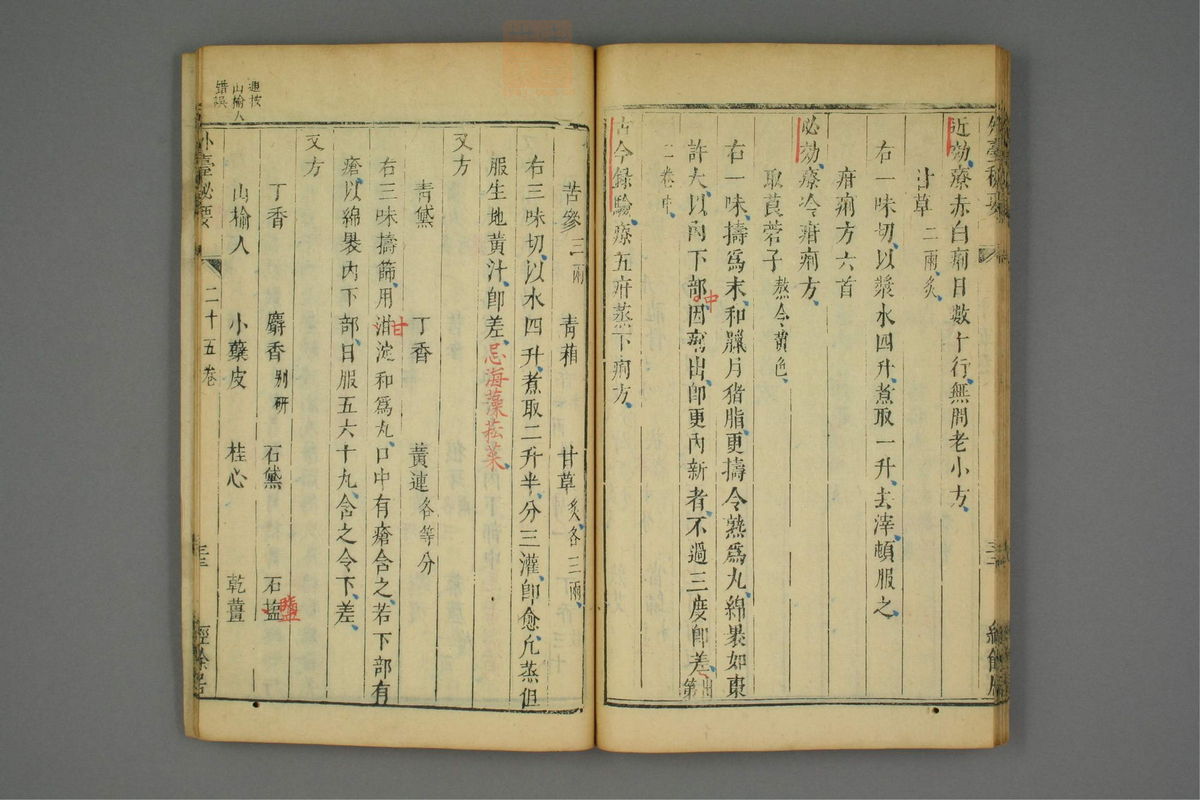 近効療赤白痢日數十行無問老小方
甘草二兩炙
右一味切以漿水四升煮取一升去滓頓服之
疳痢方六首
必効療冷疳痢方
取莨菪子熬令黃色
右一味擣為末和臘月猪脂更擣令熟為丸綿裹如棗
許大以內下部中因痢出即更內新者不過三度即差出第
二卷中
古今録驗療五疳蒸下痢方
苦參三兩 青葙 甘草炙各三兩
右三味切以水四升煮取二升半分三灌即愈凡蒸但
服生地黃汁即差忌海藻菘菜
又方
青黛 丁香 黃連各等分
右三味擣篩用泔甘淀和為丸口中有瘡含之若下部有
瘡以綿裹內下部日服五六十丸含之令下差
又方
丁香 麝香别研 石黛 石塩鹽
山榆人 小蘗皮 桂心 乾薑
外臺秘要 二十五卷 三十三 經餘居
山榆人
錯誤